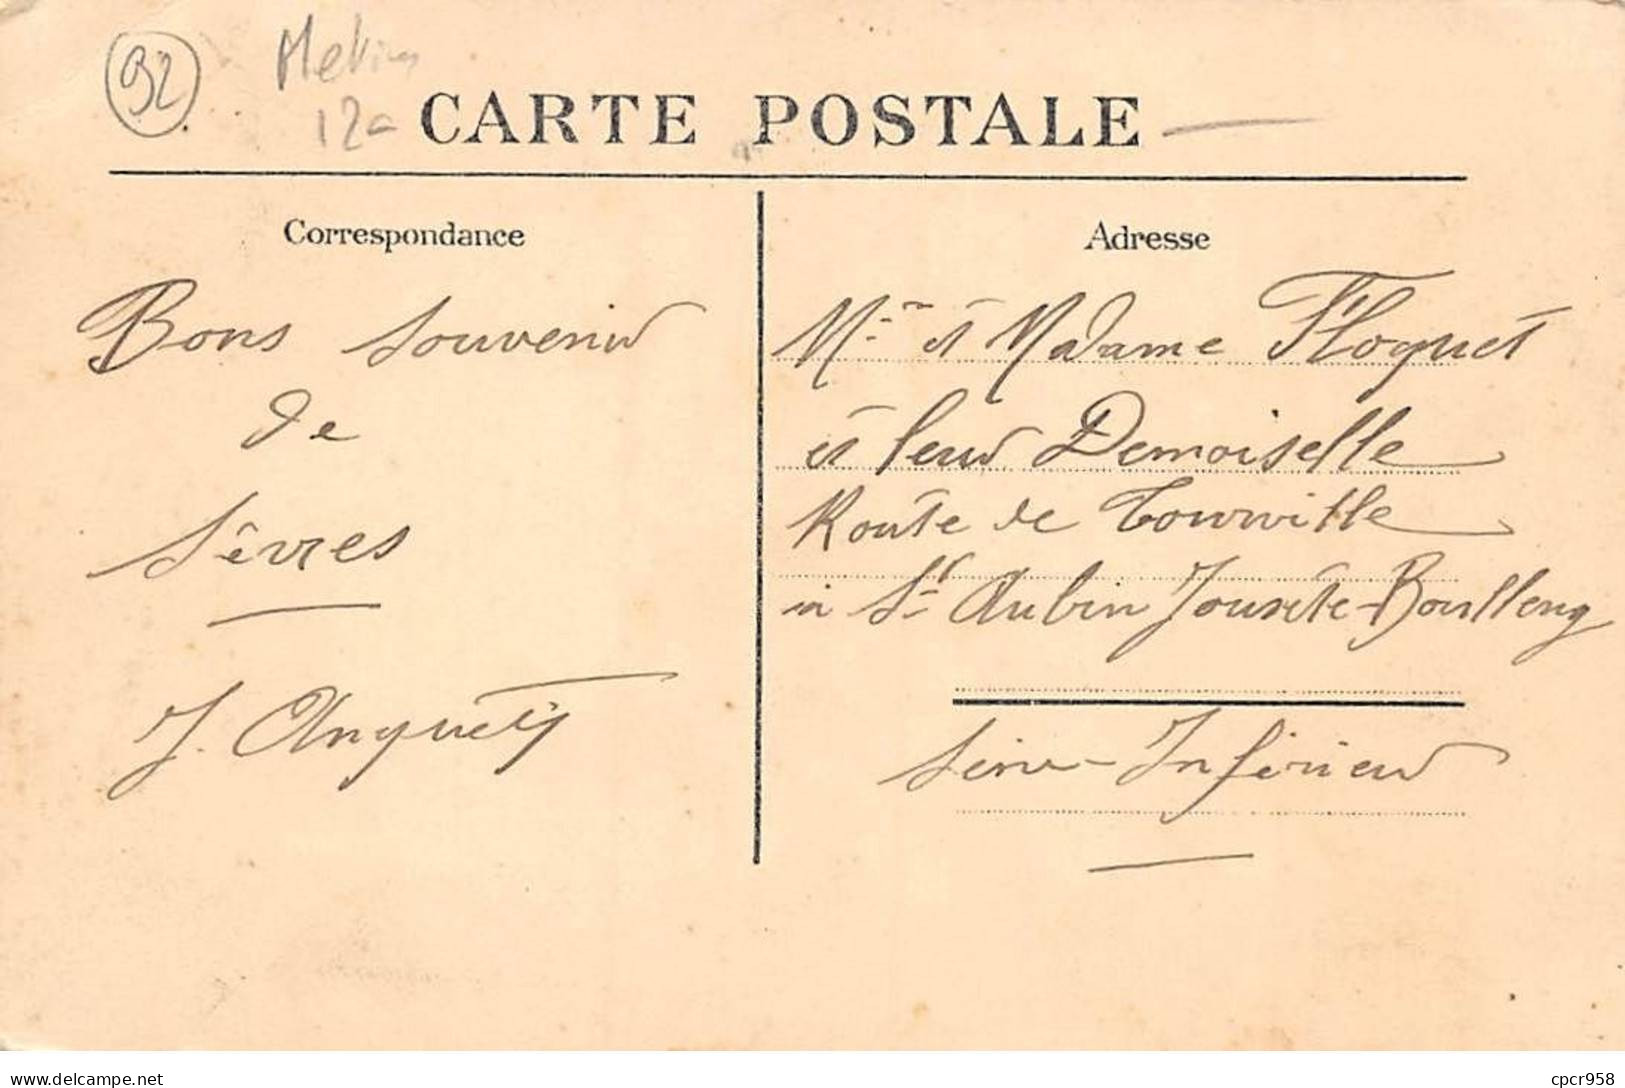 92
12
CARTE POSTALE
Correspondance
Bons Souvenir
de
Sèvres
J. Anquetil
Adresse
Mr et Madame Floquet
et leur Demoiselle
Route de Tourville
à St Aubin Jouxte-Boulleng
Seine-Inférieur
delcampe.net
cpcr958